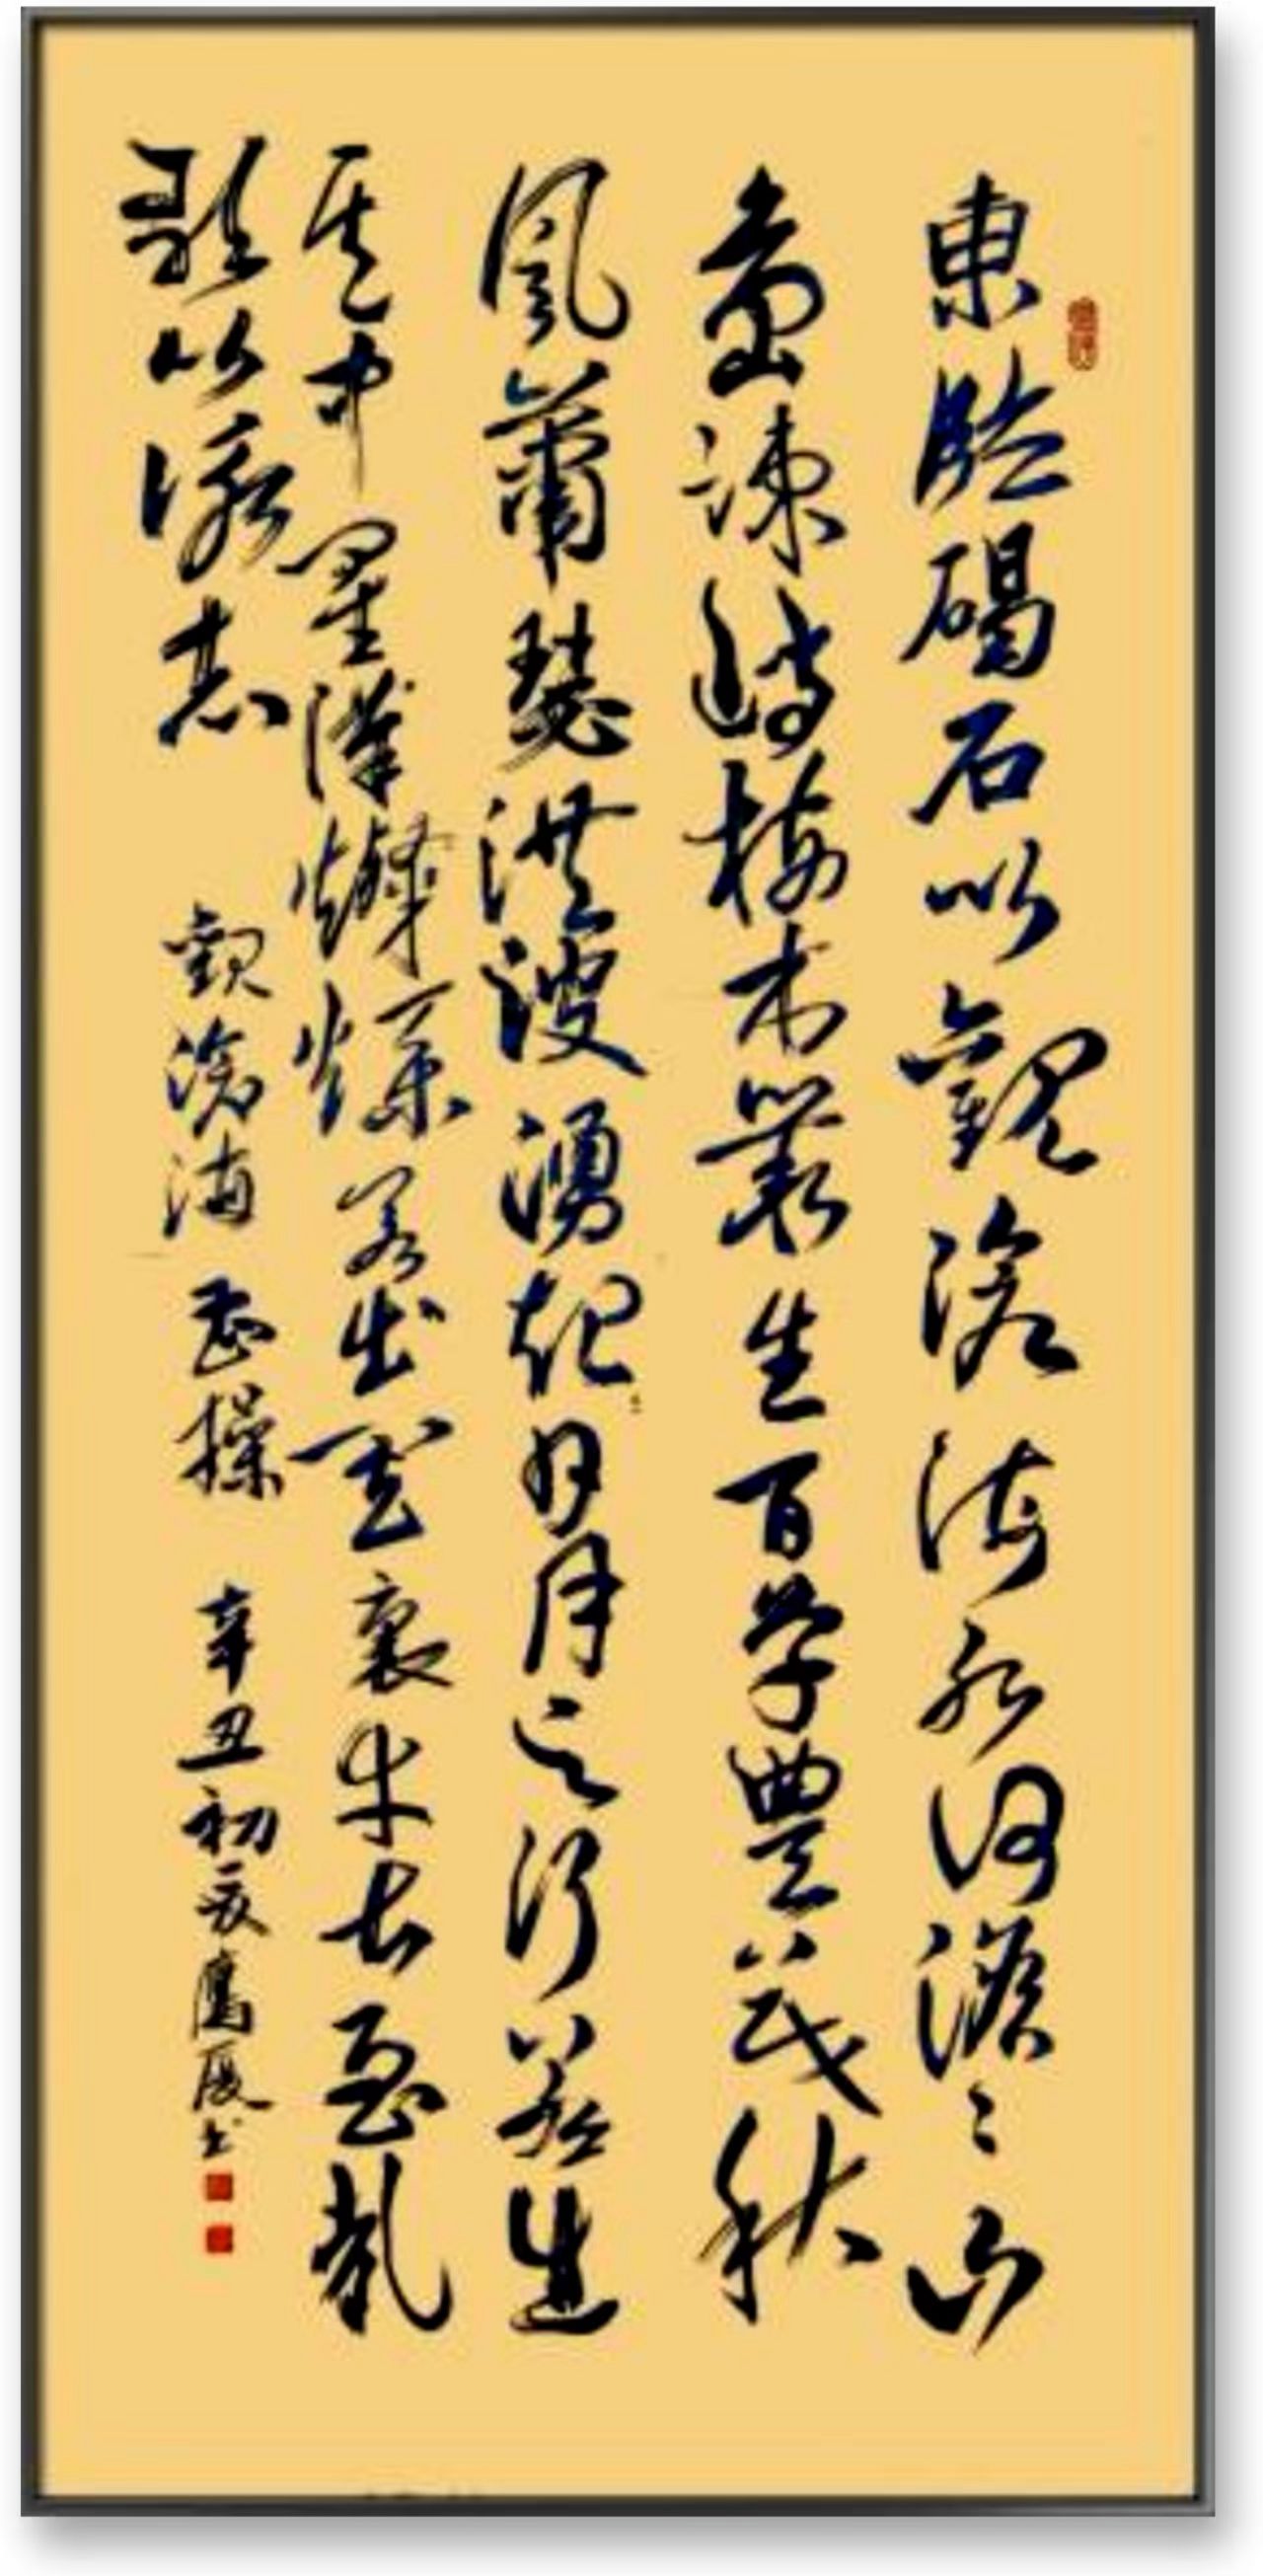 東臨碣石以觀滄海水何澹〻山
島竦峙樹木叢生百草豐茂秋
風蕭瑟洪波湧起日月之行若出
其中星漢燦爛若出其裏幸甚至哉
歌以詠志 觀滄海 曹操 辛丑初夏鷹书